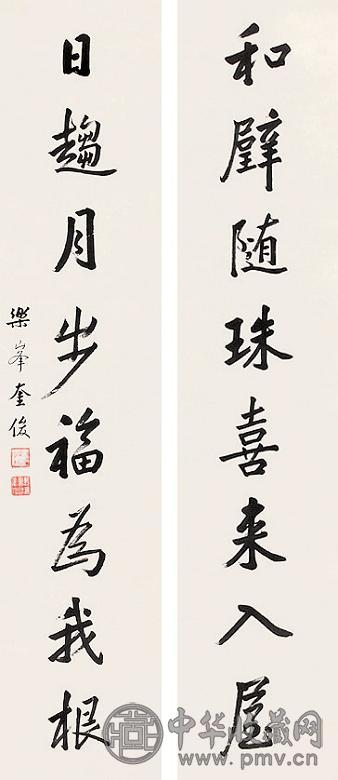 和璧随珠喜来入屋
日趨月步福為我根
樂峯奎俊
中华收藏网
www.pmv.cn